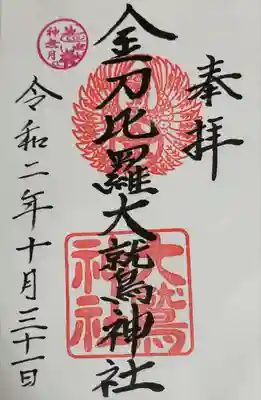 奉拝
金刀比羅大鷲神社
大鷲
神社
令和二年十月三十一日
神無月